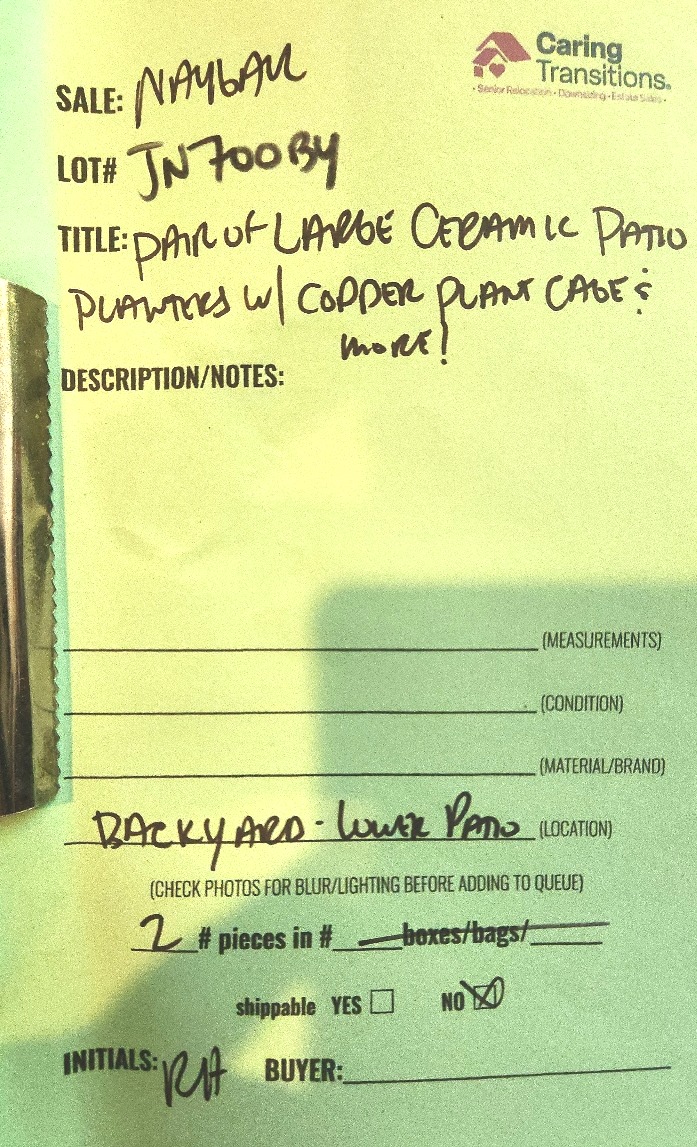 Caring
Transitions.
• Senior Relocation • Downsizing • Estate Sales •
SALE: NAYBAR
LOT# JN700BY
TITLE: PAIR OF LARGE CERAMIC PATIO
PLANTERS W/ COPPER PLANT CAGE &
MORE!
DESCRIPTION/NOTES:
(MEASUREMENTS)
(CONDITION)
(MATERIAL/BRAND)
BACKYARD - LOWER PATIO (LOCATION)
(CHECK PHOTOS FOR BLUR/LIGHTING BEFORE ADDING TO QUEUE)
2 # pieces in # boxes/bags/
shippable YES NO
INITIALS: RH BUYER: